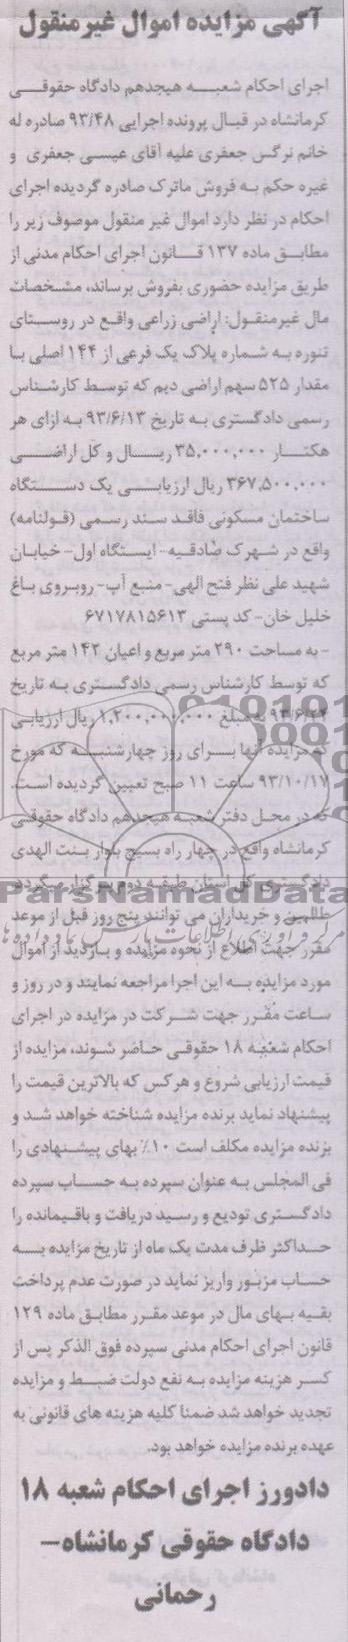 آگهی مزایده اموال غیرمنقول
اجرای احکام شعبه هیجدهم دادگاه حقوقی
کرمانشاه در قبال پرونده اجرایی ۹۳/۴۸ صادره له
خانم نرگس جعفری علیه آقای عیسی جعفری و
غیره حکم به فروش ماترک صادره گردیده اجرای
احکام در نظر دارد اموال غیر منقول موصوف زیر را
مطابق ماده ۱۳۷ قانون اجرای احکام مدنی از
طریق مزایده حضوری بفروش برساند، مشخصات
مال غیرمنقول: اراضی زراعی واقع در روستای
تنوره به شماره پلاک یک فرعی از ۱۴۴ اصلی با
مقدار ۵۲۵ سهم اراضی دیم که توسط کارشناس
رسمی دادگستری به تاریخ ۹۳/۶/۱۳ به ازای هر
هکتار ۳۵,۰۰۰,۰۰۰ ریال و کل اراضی
۳۶۷,۵۰۰,۰۰۰ ریال ارزیابی یک دستگاه
ساختمان مسکونی فاقد سند رسمی (قولنامه)
واقع در شهرک صادقیه- ایستگاه اول- خیابان
شهید علی نظر فتح الهی- منبع آب- روبروی باغ
خلیل خان- کد پستی ۶۷۱۷۸۱۵۶۱۳
- به مساحت ۲۹۰ متر مربع و اعیان ۱۴۲ متر مربع
که توسط کارشناس رسمی دادگستری به تاریخ
۹۳/۶/۲۴ به مبلغ ۱,۲۰۰,۰۰۰,۰۰۰ ریال ارزیابی
که مزایده آنها برای روز چهارشنبه که مورخ
۹۳/۱۰/۱۷ ساعت ۱۱ صبح تعیین گردیده است.
که در محل دفتر شعبه هیجدهم دادگاه حقوقی
کرمانشاه واقع در چهار راه بسیج بلوار بنت الهدی
دادگستری کل استان طبقه دوم برگزار میگردد.
ParsNamadData
طالبین و خریداران می توانند پنج روز قبل از موعد
مقرر جهت اطلاع از نحوه مزایده و بازدید از اموال
مورد مزایده به این اجرا مراجعه نمایند و در روز و
ساعت مقرر جهت شرکت در مزایده در اجرای
احکام شعبه ۱۸ حقوقی حاضر شوند، مزایده از
قیمت ارزیابی شروع و هرکس که بالاترین قیمت را
پیشنهاد نماید برنده مزایده شناخته خواهد شد و
برنده مزایده مکلف است ۱۰٪ بهای پیشنهادی را
فی المجلس به عنوان سپرده به حساب سپرده
دادگستری تودیع و رسید دریافت و باقیمانده را
حداکثر ظرف مدت یک ماه از تاریخ مزایده به
حساب مزبور واریز نماید در صورت عدم پرداخت
بقیه بهای مال در موعد مقرر مطابق ماده ۱۲۹
قانون اجرای احکام مدنی سپرده فوق الذکر پس از
کسر هزینه مزایده به نفع دولت ضبط و مزایده
تجدید خواهد شد ضمنا کلیه هزینه های قانونی به
عهده برنده مزایده خواهد بود.
دادورز اجرای احکام شعبه ۱۸
دادگاه حقوقی کرمانشاه-
رحمانی